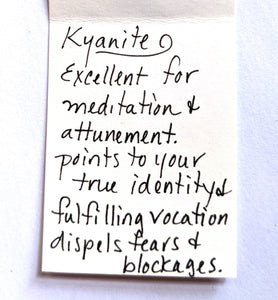 Kyanite
Excellent for
meditation &
attunement.
points to your
true identity &
fulfilling vocation
dispels fears &
blockages.